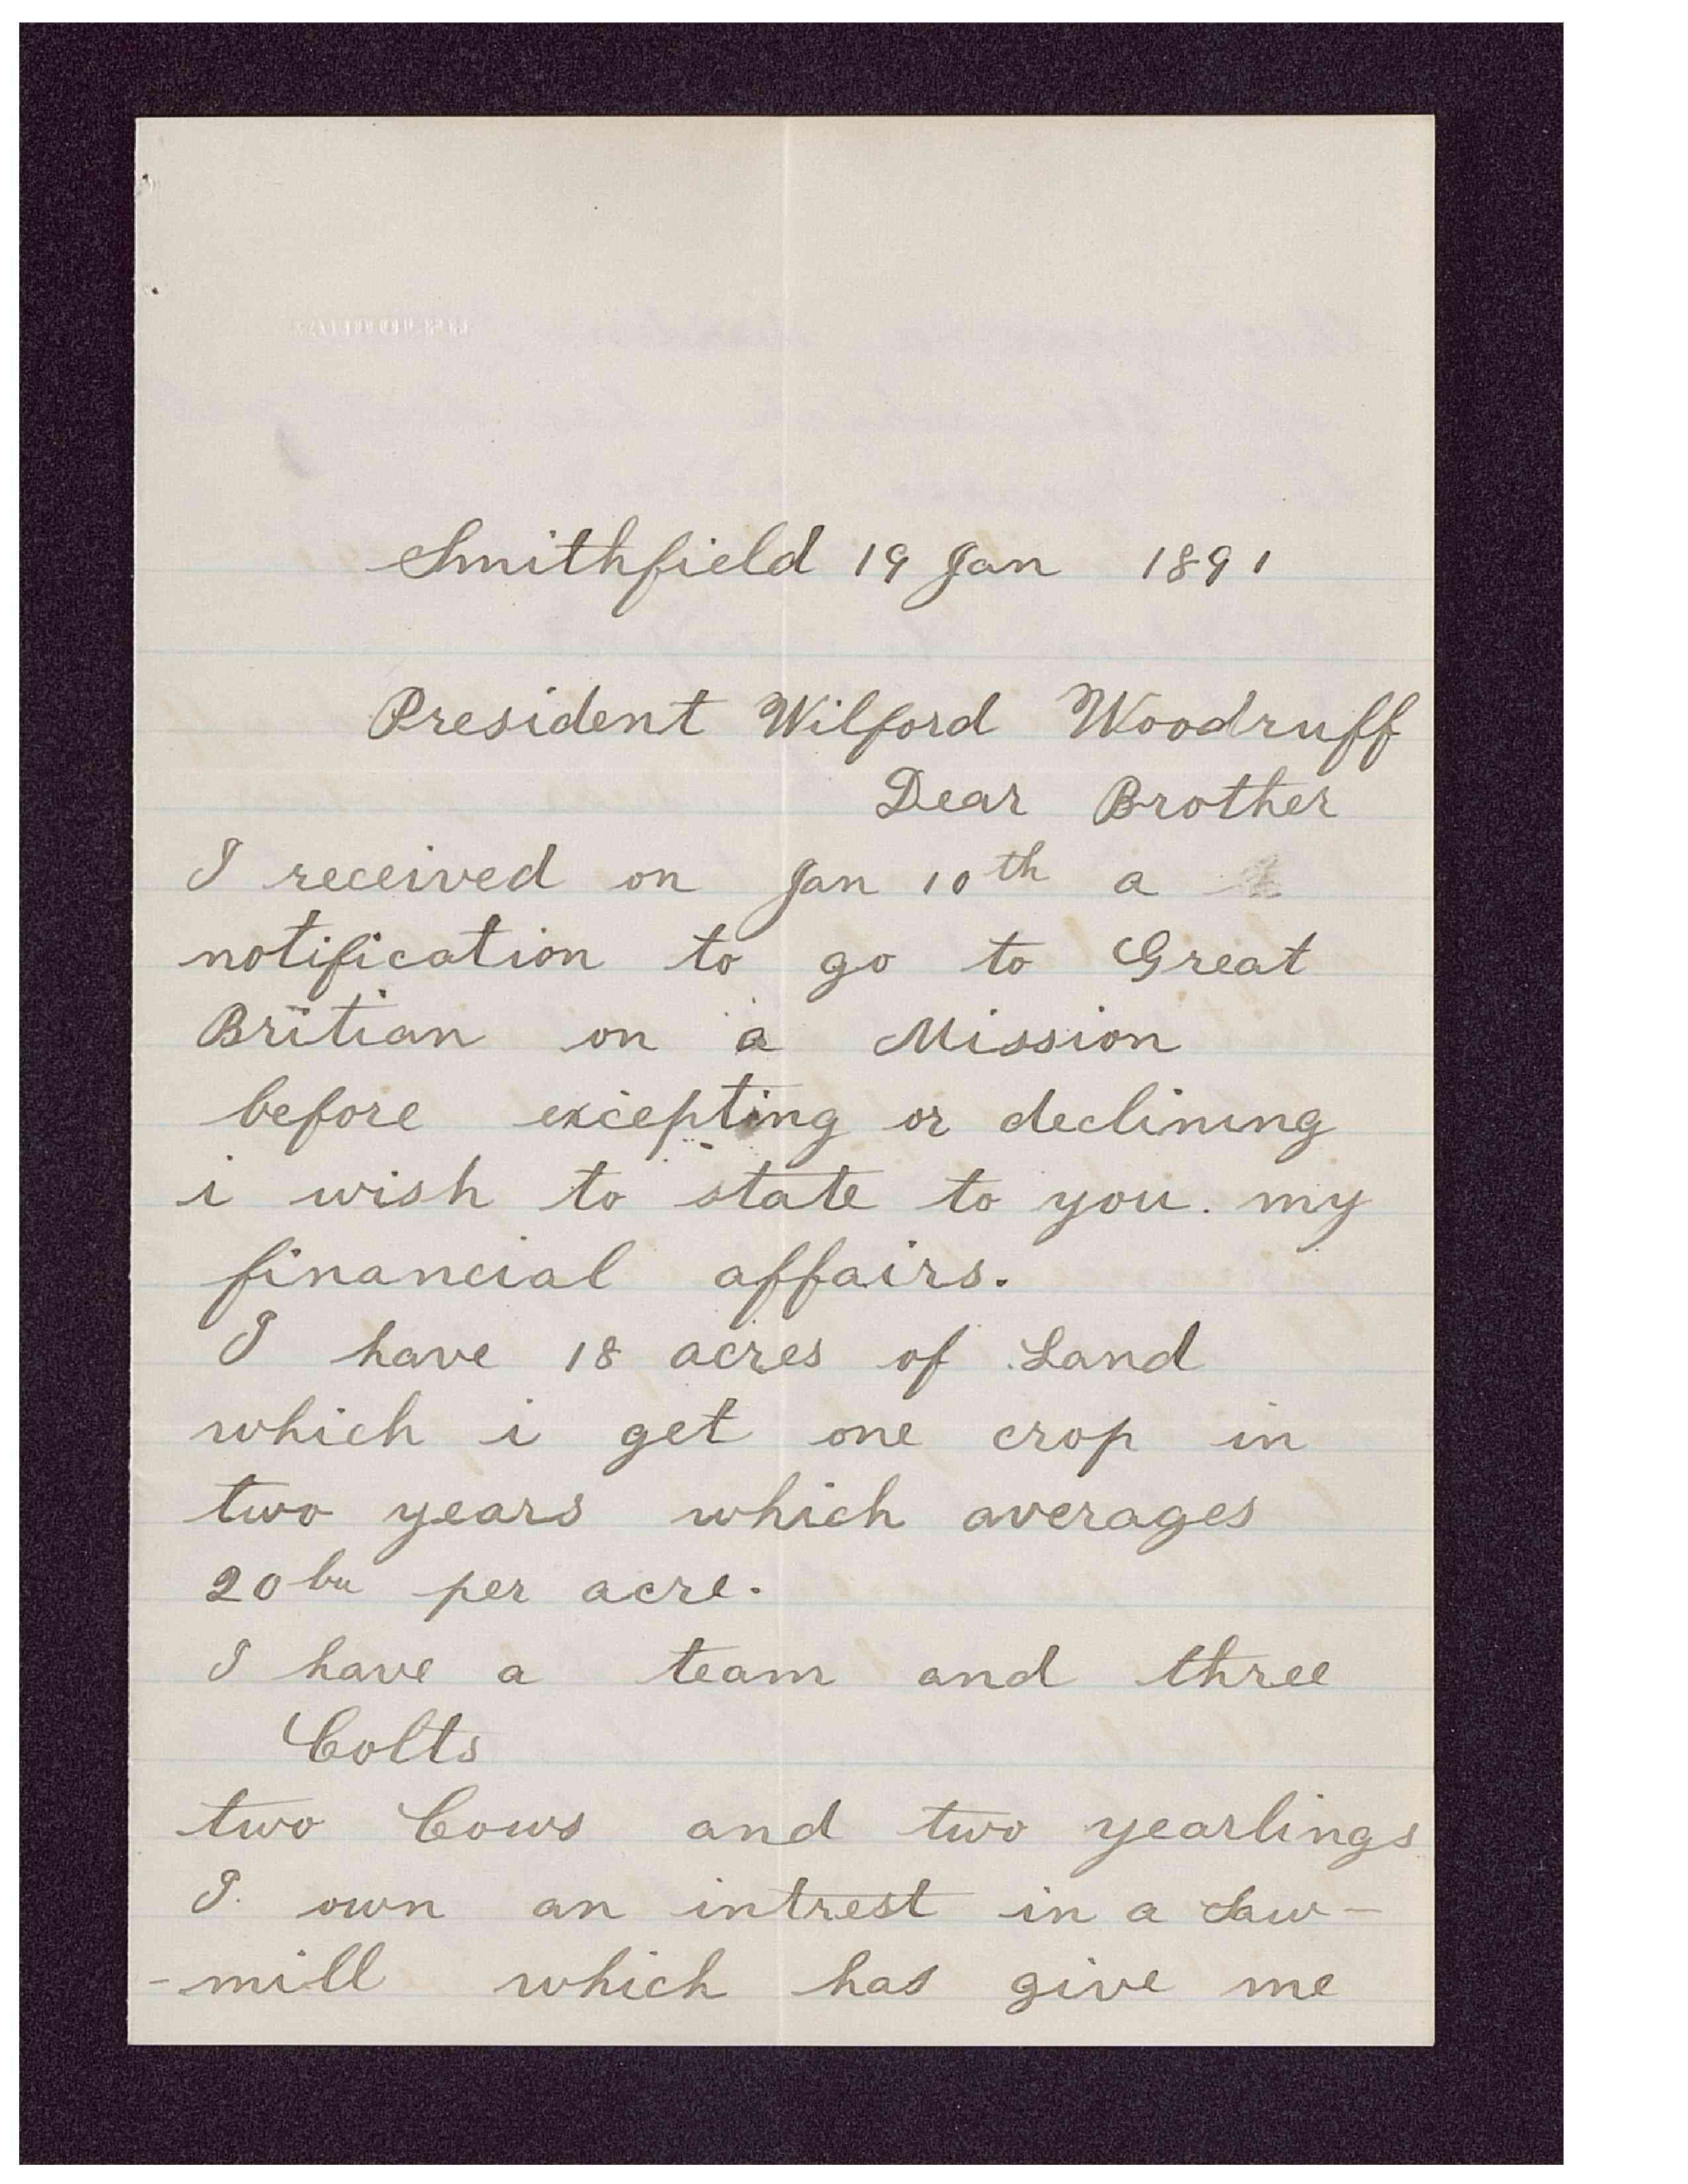 Smithfield 19 Jan 1891
President Wilford Woodruff
Dear Brother
I received on Jan 10th a
notification to go to Great
Britian on a Mission
before excepting or declining
i wish to state to you. my
financial affairs.
I have 18 acres of Land
which i get one crop in
two years which averages
20 bu per acre.
I have a team and three
Colts
two Cows and two yearlings
I. own an intrest in a Saw-
-mill which has give me